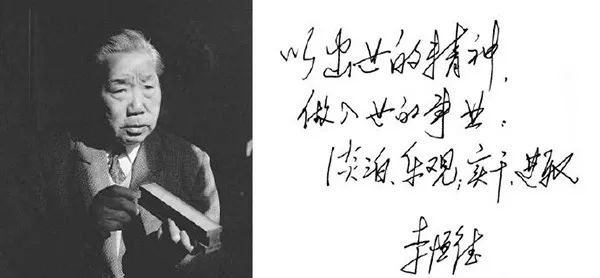 以出世的精神，
做入世的事业；
淡泊、乐观、实干、进取
李恒德